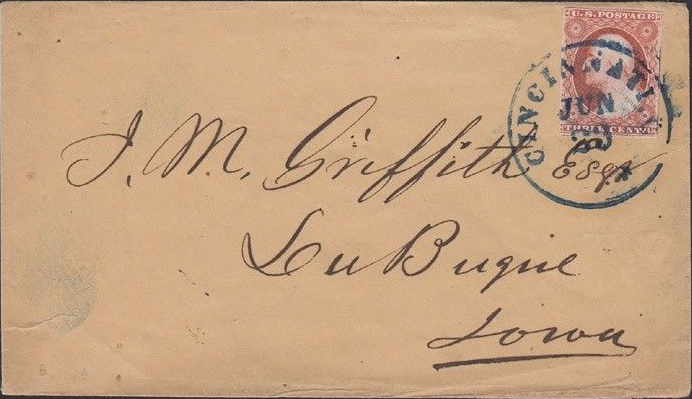 U.S. POSTAGE
THREE CENTS
CINCINNATI
JUN
J. M. Griffith Esqr
DuBuque
Iowa